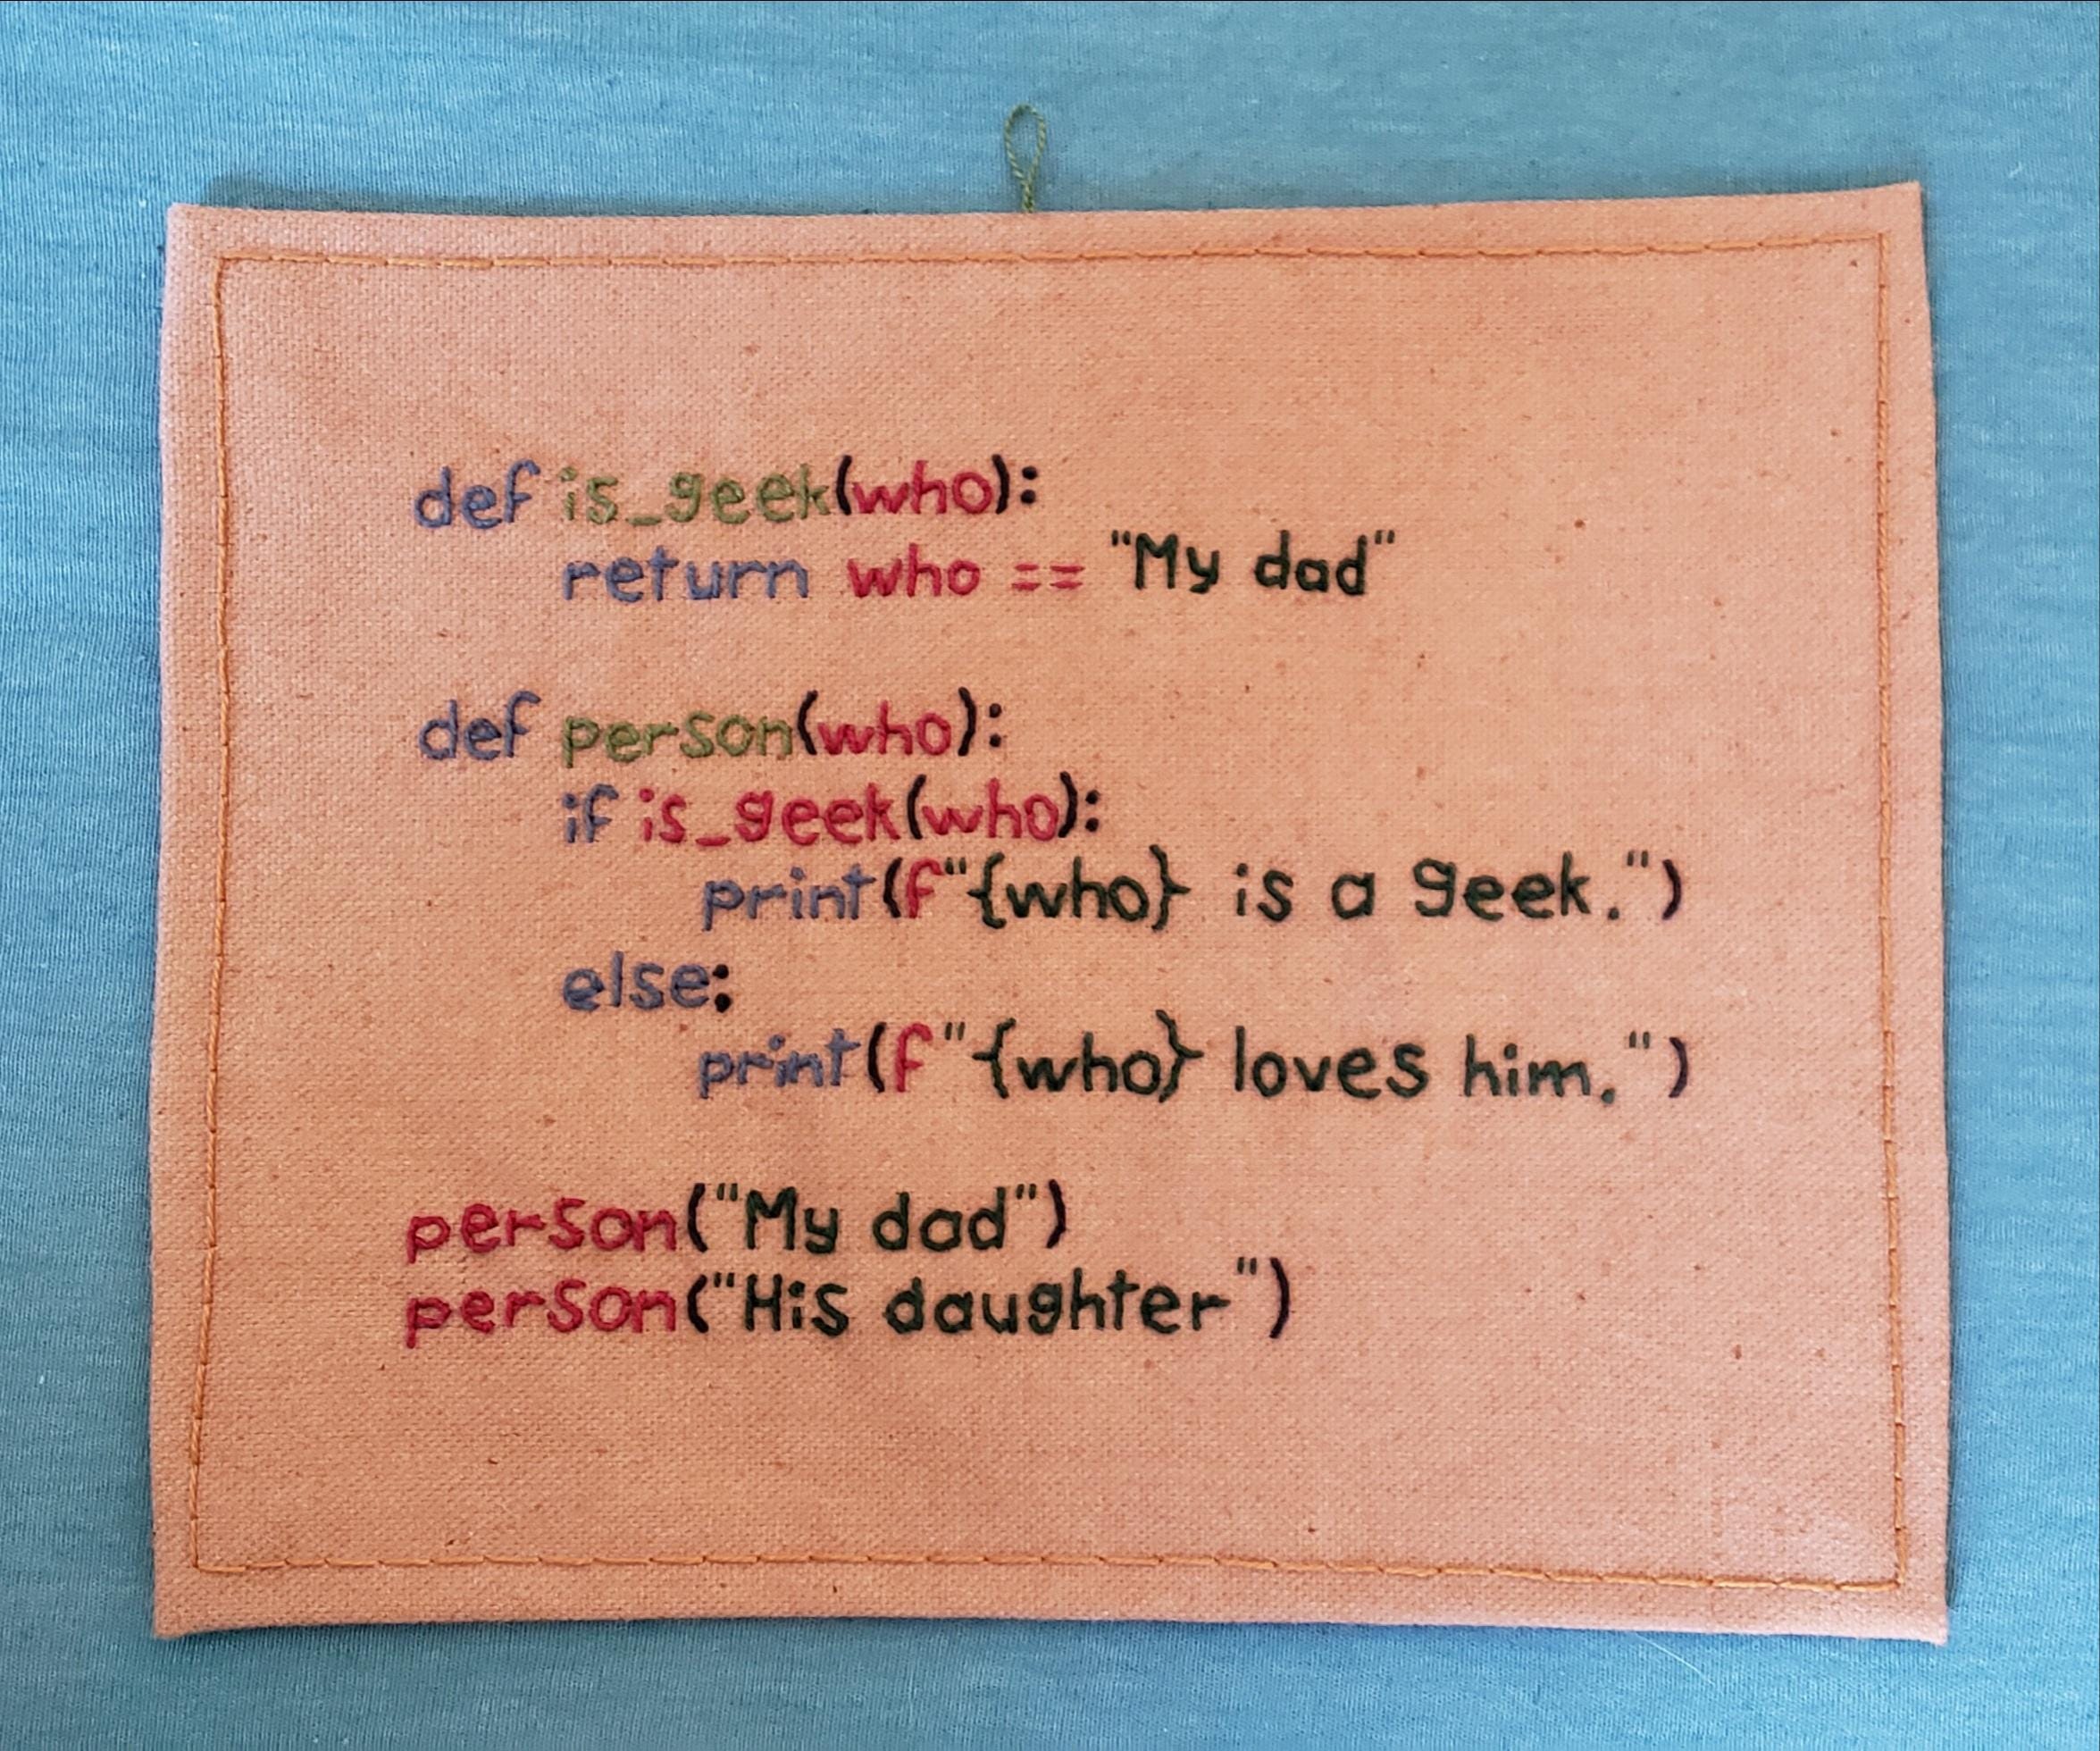 def is_geek(who):
    return who == "My dad"
def person(who):
    if is_geek(who):
        print(f"{who} is a geek.")
    else:
        print(f"{who} loves him.")
person("My dad")
person("His daughter")